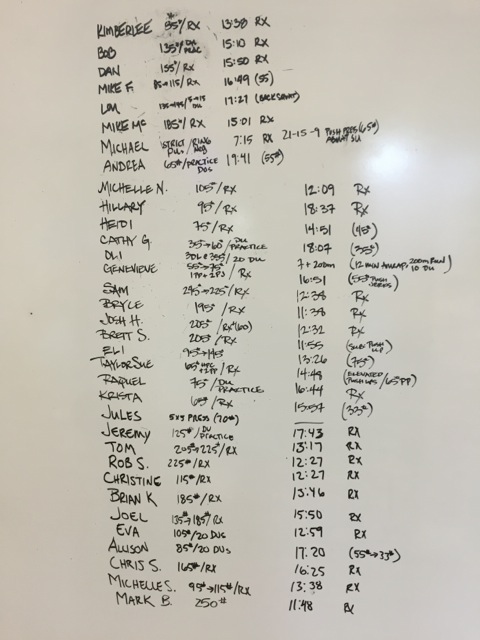 KIMBERLEE 85#/RX 13:38 RX
BOB 135#/DU PRAC 15:10 RX
DAN 155#/RX 15:50 RX
MIKE F. 85→115/RX 16:49 (55)
LOU 17:27
MIKE MC 185#/RX 15:01 RX
MICHAEL STRICT PU./RING 7:15 RX 21-15-9 PUSH PRESS (65#)
ANDREA 65#/PRACTICE DUS 19:41 (55#)
MICHELLE N. 105#/RX 12:09 RX
HILLARY 95#/RX 18:37 RX
HEIDI 75#/RX 14:51 (45#)
CATHY G. 35→60#/DU PRACTICE 18:07 (35#)
OLI 35#/20 DU 7+200m (12 MIN AMRAP, 200m RUN, 10 DU)
GENEVIEVE 55→75# 1PP+2PJ/RX 16:51 (55# PUSH)
SAM 245#→225#/RX 12:38 RX
BRYCE 195#/RX 11:38 RX
JOSH H. 205#/RX(60) 12:32 RX
BRETT S. 205#/RX 11:55
ELI 95#→145# 13:26 (75#)
TAYLOR SUE 65#/RX 14:48 (ELEVATED PUSH UPS/65#PP)
RAQUEL 75#/DU PRACTICE 16:44 RX
KRISTA 65#/RX 15:57 (33#)
JULES 5x5 PRESS (70#)
JEREMY 125#/DU PRACTICE 17:43 RX
TOM 205#→225#/RX 13:17 RX
ROB S. 225#/RX 12:27 RX
CHRISTINE 115#/RX 12:27 RX
BRIAN K 185#/RX 13:46 RX
JOEL 135→185#/RX 15:50 RX
EVA 105#/20 DUS 12:59 RX
ALLISON 85#/20 DUS 17:20 (55#→33#)
CHRIS S. 165#/RX 16:25 RX
MICHELLE S. 95#→115#/RX 13:38 RX
MARK B. 250# 11:48 RX